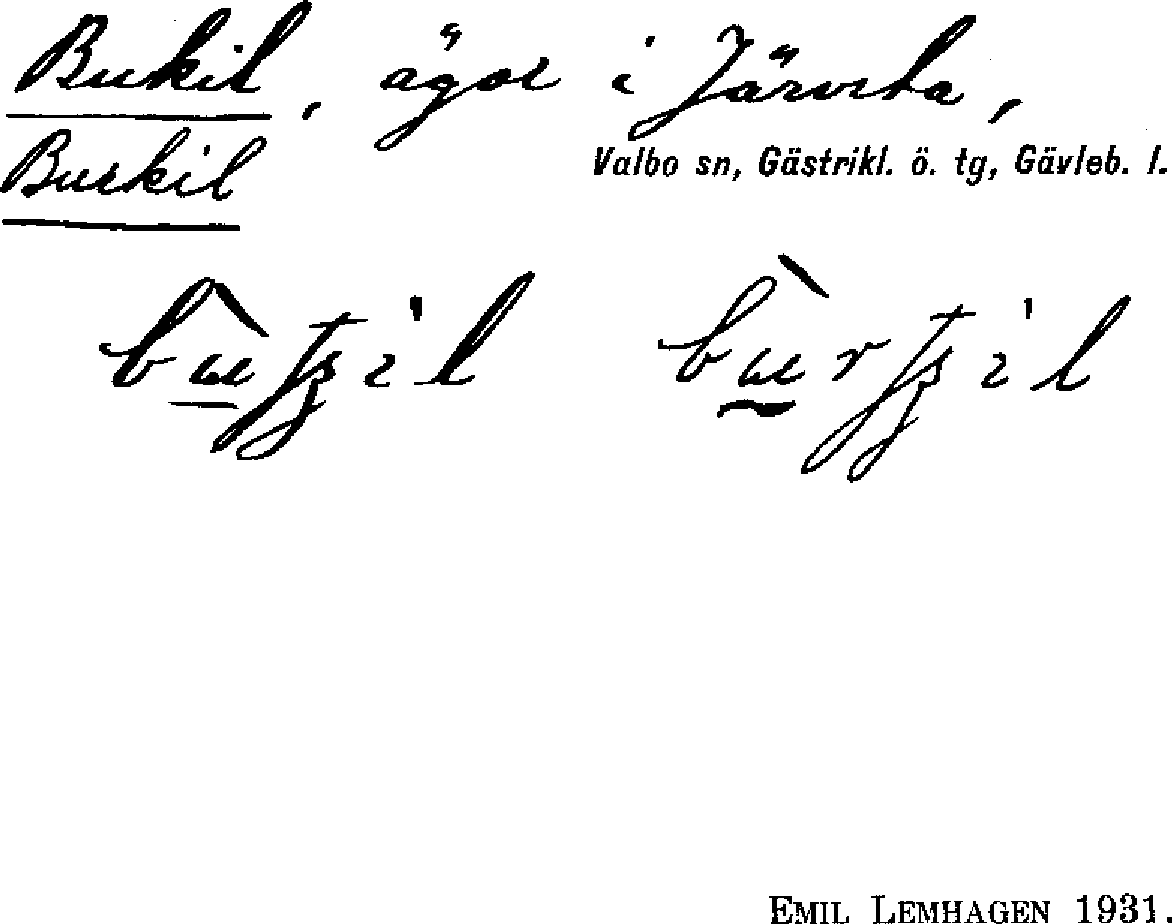 Bukil, ägor i Järvsta,
Burkil
Valbo sn, Gästrikl. ö. tg, Gävleb. l.
EMIL LEMHAGEN 1931.